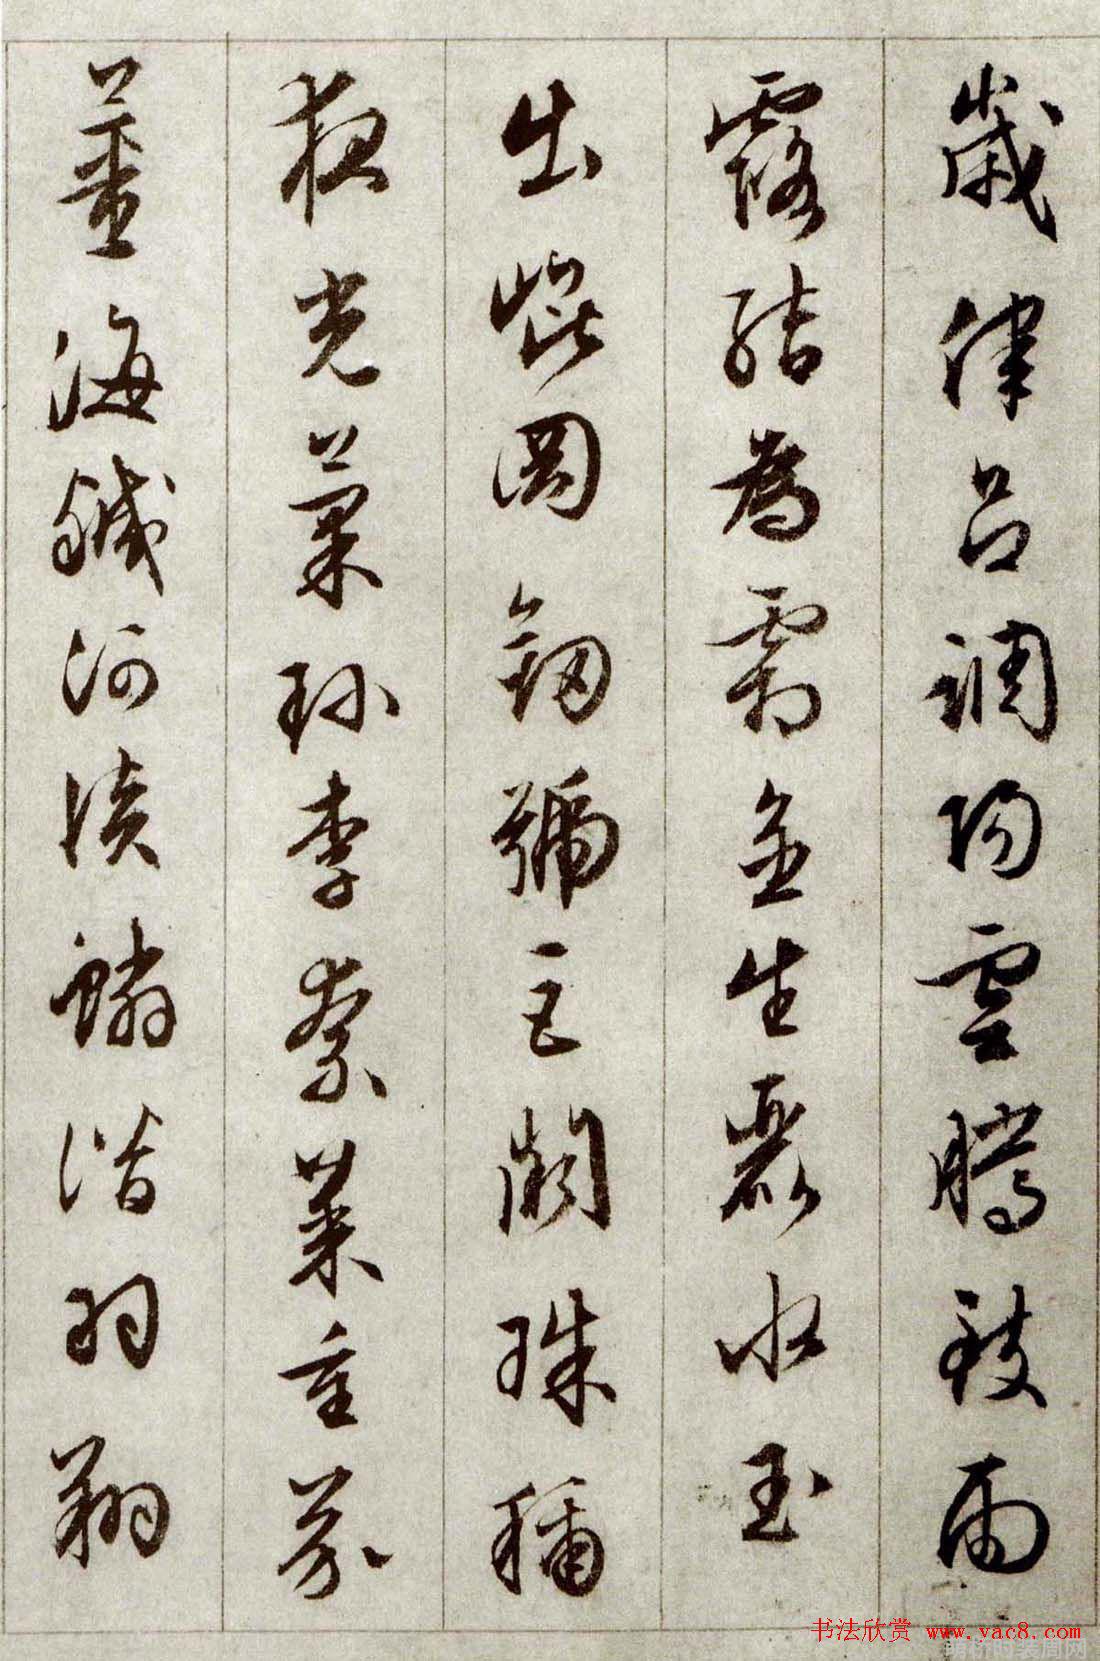 歲律呂調陽雲騰致雨
露結為霜金生麗水玉
出崐岡劒號巨闕珠稱
夜光菓珍李柰菜重芥
薑海鹹河淡鱗潛羽翔
书法欣赏 www.yac8.com